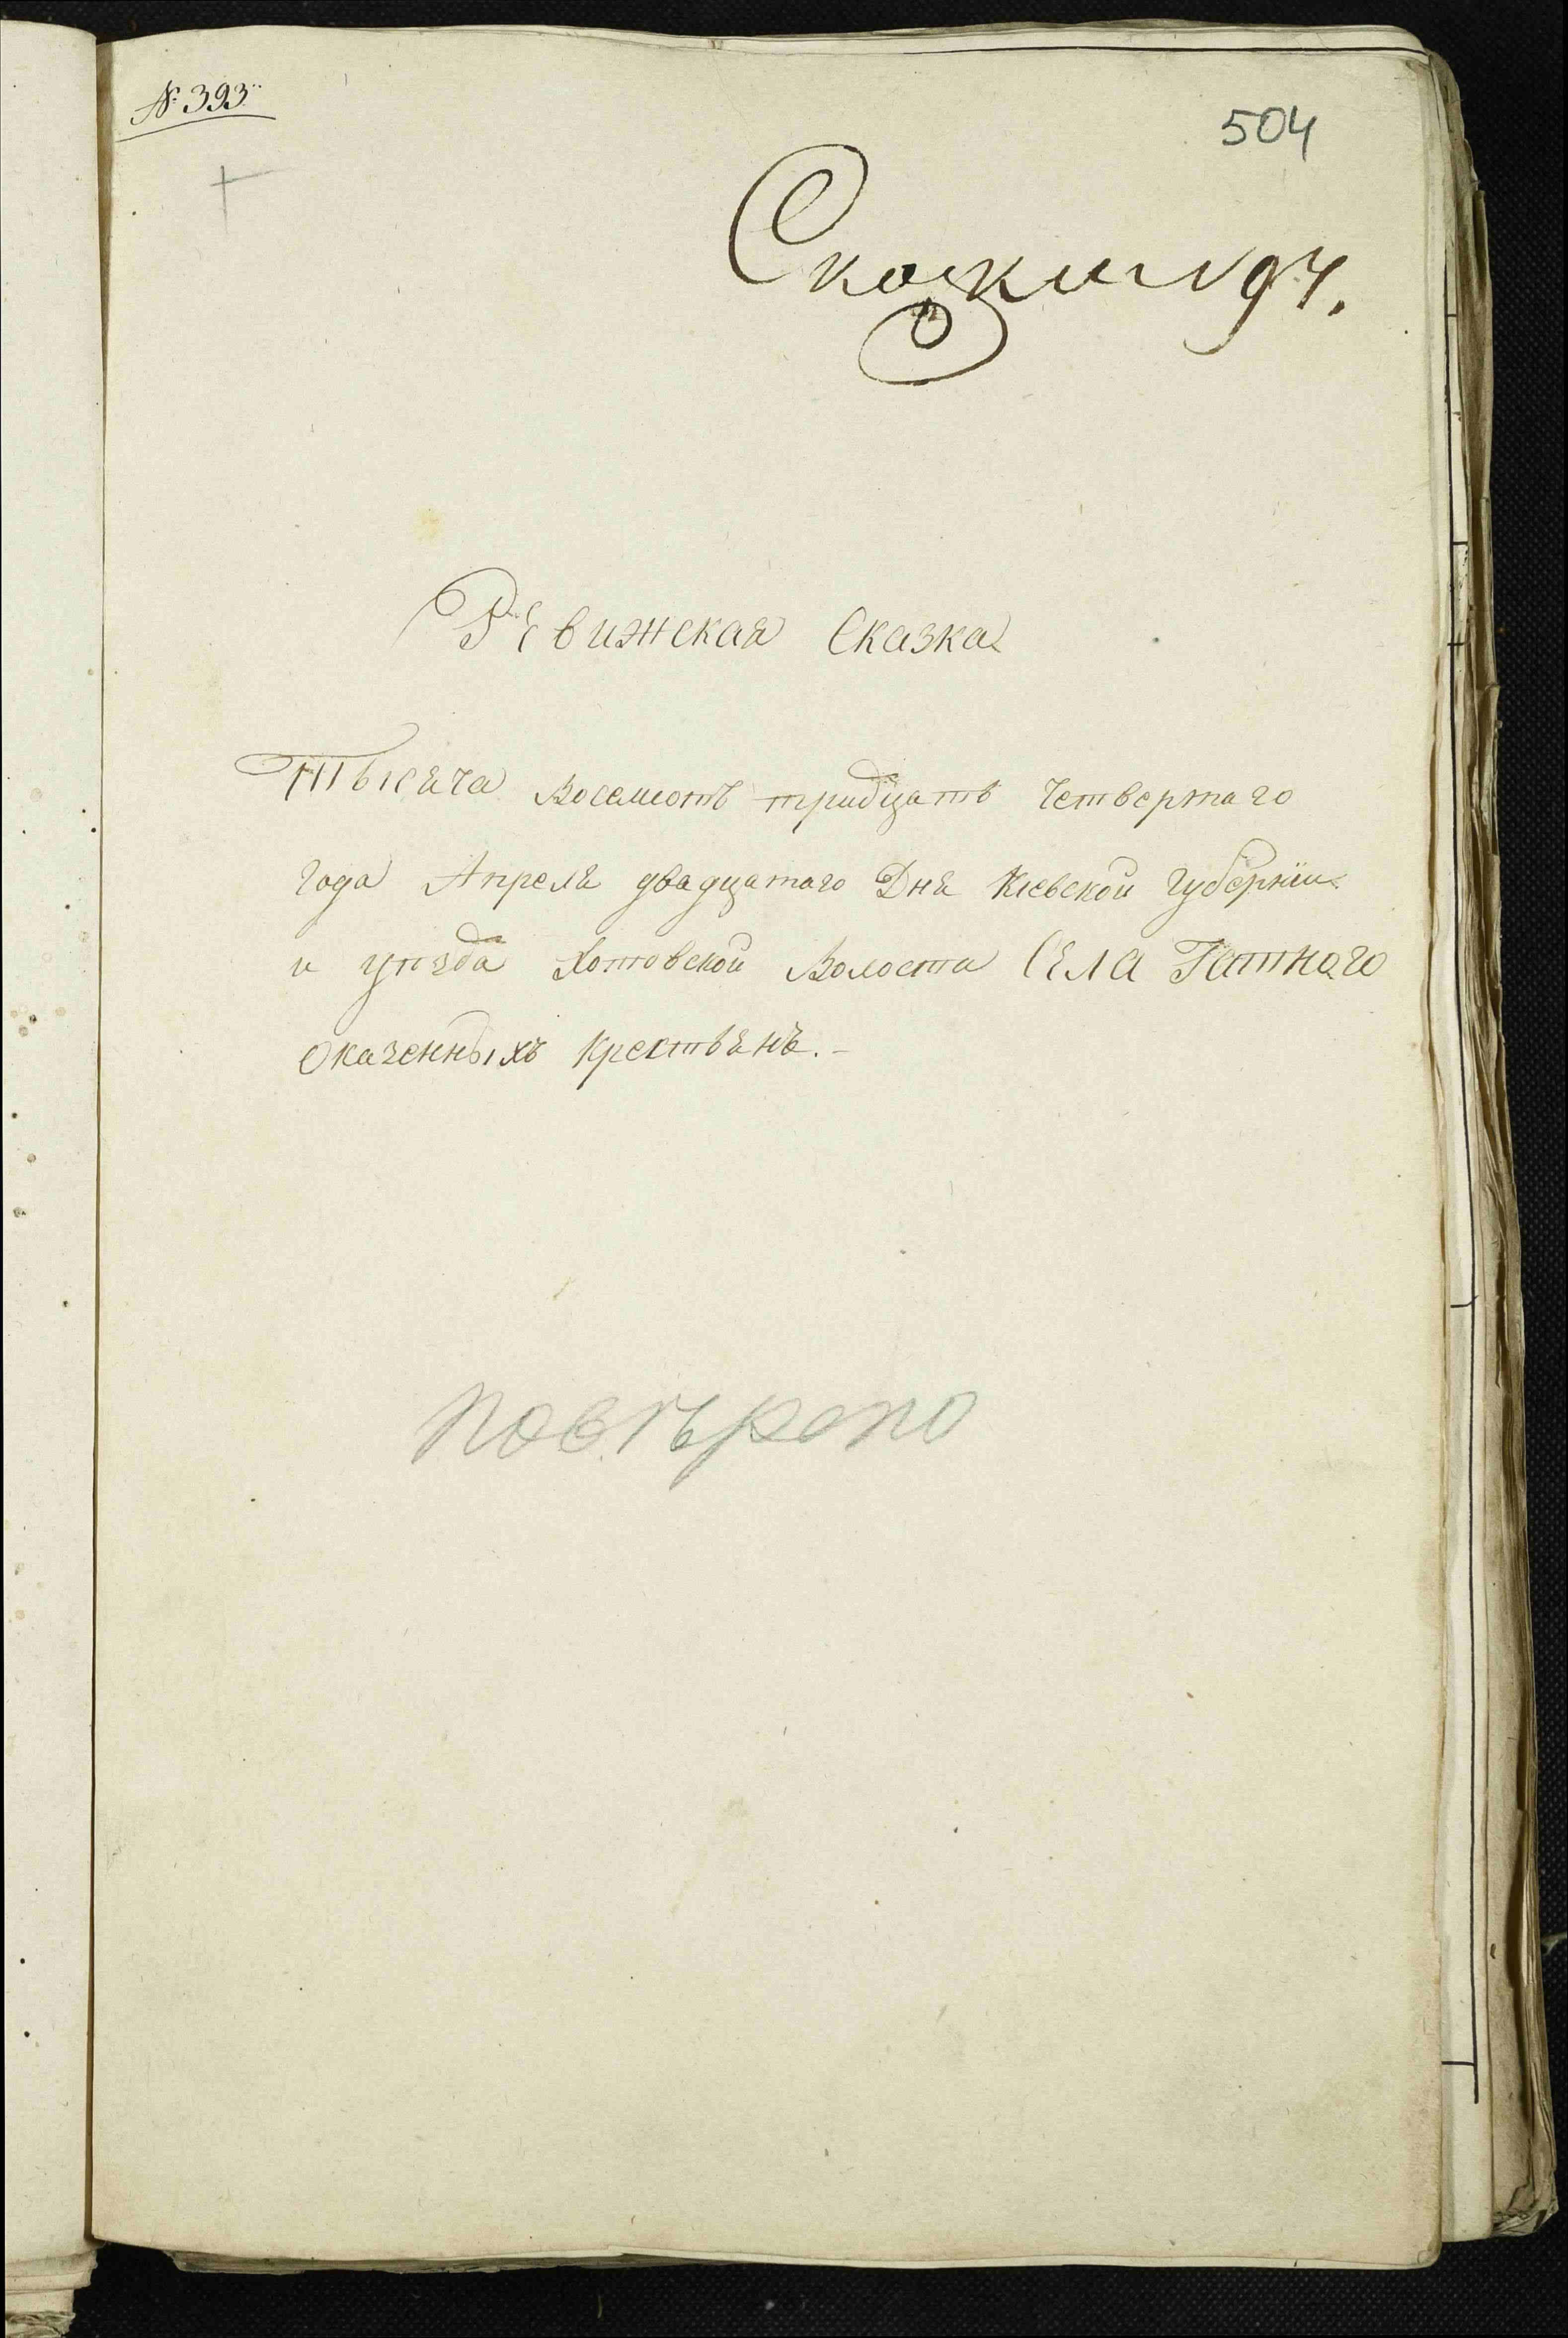 № 393
504
Сказки № 94.
Ревижская Сказка
Тысяча Восемсотъ тридцать Четвертаго
года Апреля двадцатаго Дня Кіевской Губерніи
и уезда Хотовской Волости Села Гатнаго
Оказенныхъ крестьянъ. –
повѣрено